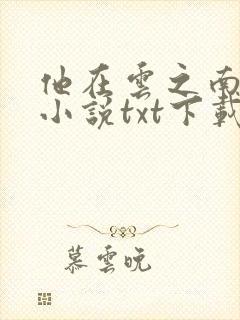 他在雲之南
小說txt下載
慕雲晚